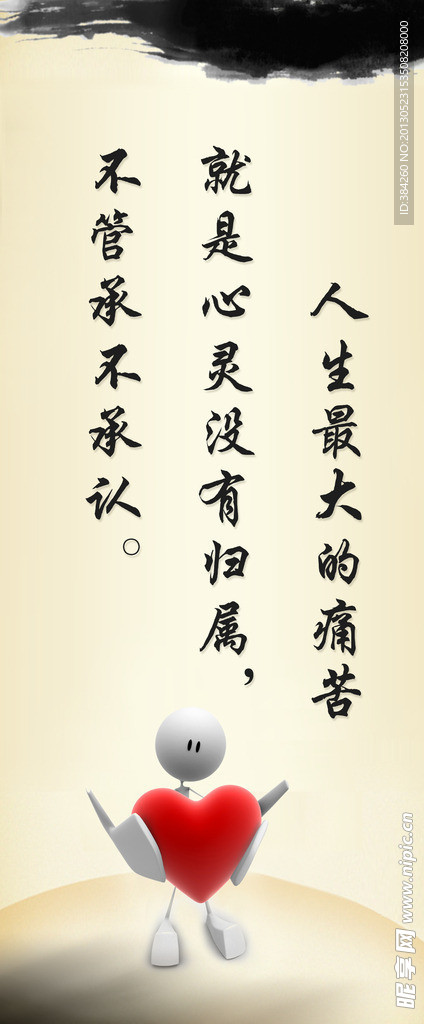 人生最大的痛苦
就是心灵没有归属，
不管承不承认。
ID:384260 NO:20130523153508208000
昵享网 www.nipic.cn